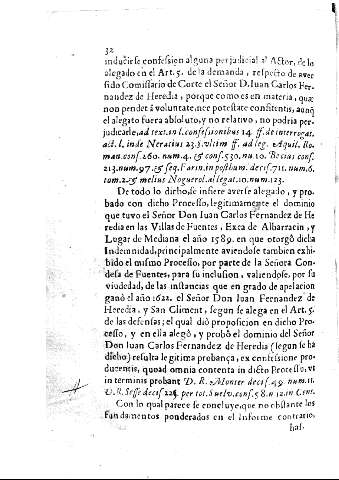 32
induciese confession alguna perjudicial al Actor, de lo
alegado en el Art. 5. de la demanda, respecto de aver
sido Comissario de Corte el Señor D. Iuan Carlos Fer-
nandez de Heredia, porque como es en materia, quæ
non pendet à voluntate, nec potestate confitentis, aunq̃
el alegato fuera absoluto, y no relativo, no podria per-
judicarle, ad text. in l. confessionibus 14. ff. de interrogat.
act. l. inde Neratius 23. §. vltim ff. ad leg. Aquil. Ro-
man. conf. 260. num. 4. & conf. 530. nu. 10. Becius conf.
213. num. 97. & seq. Farin. in posthum. decis. 711. num. 6.
tom. 2. & melius Noguerol. allegat. 10. num. 123.
De todo lo dicho, se infiere averse alegado, y pro-
bado con dicho Processo, legitimamente el dominio
que tuvo el Señor Don Iuan Carlos Fernandez de He
redia en las Villas de Fuentes, Exea de Albarracin, y
Lugar de Mediana el año 1589. en que otorgò dicha
Indemnidad, principalmente aviendose tambien exhi-
bido el mismo Processo, por parte de la Señora Con-
desa de Fuentes, para su inclusion, valiendose, por su
viudedad, de las instancias que en grado de apelacion
ganò el año 1622. el Señor Don Iuan Fernandez de
Heredia, y San Climent, segun se alega en el Art. 5.
de las defensas; el qual diò proposicion en dicho Pro-
cesso, y en ella alegò, y probò el dominio del Señor
Don Iuan Carlos Fernandez de Heredia (segun se ha
dicho) resulta legitima probança, ex confessione pro-
ducentis, quoad omnia contenta in dicto Processo, vt
in terminis probant D. R. Monter decis. 49. num. 11.
D. R. Sesse decis. 224. per tot. Suelv. conf. 58. n. 12. in Cent.
Con lo qual parece se concluye, que no obstante los
fundamentos ponderados en el Informe contrario,
has-